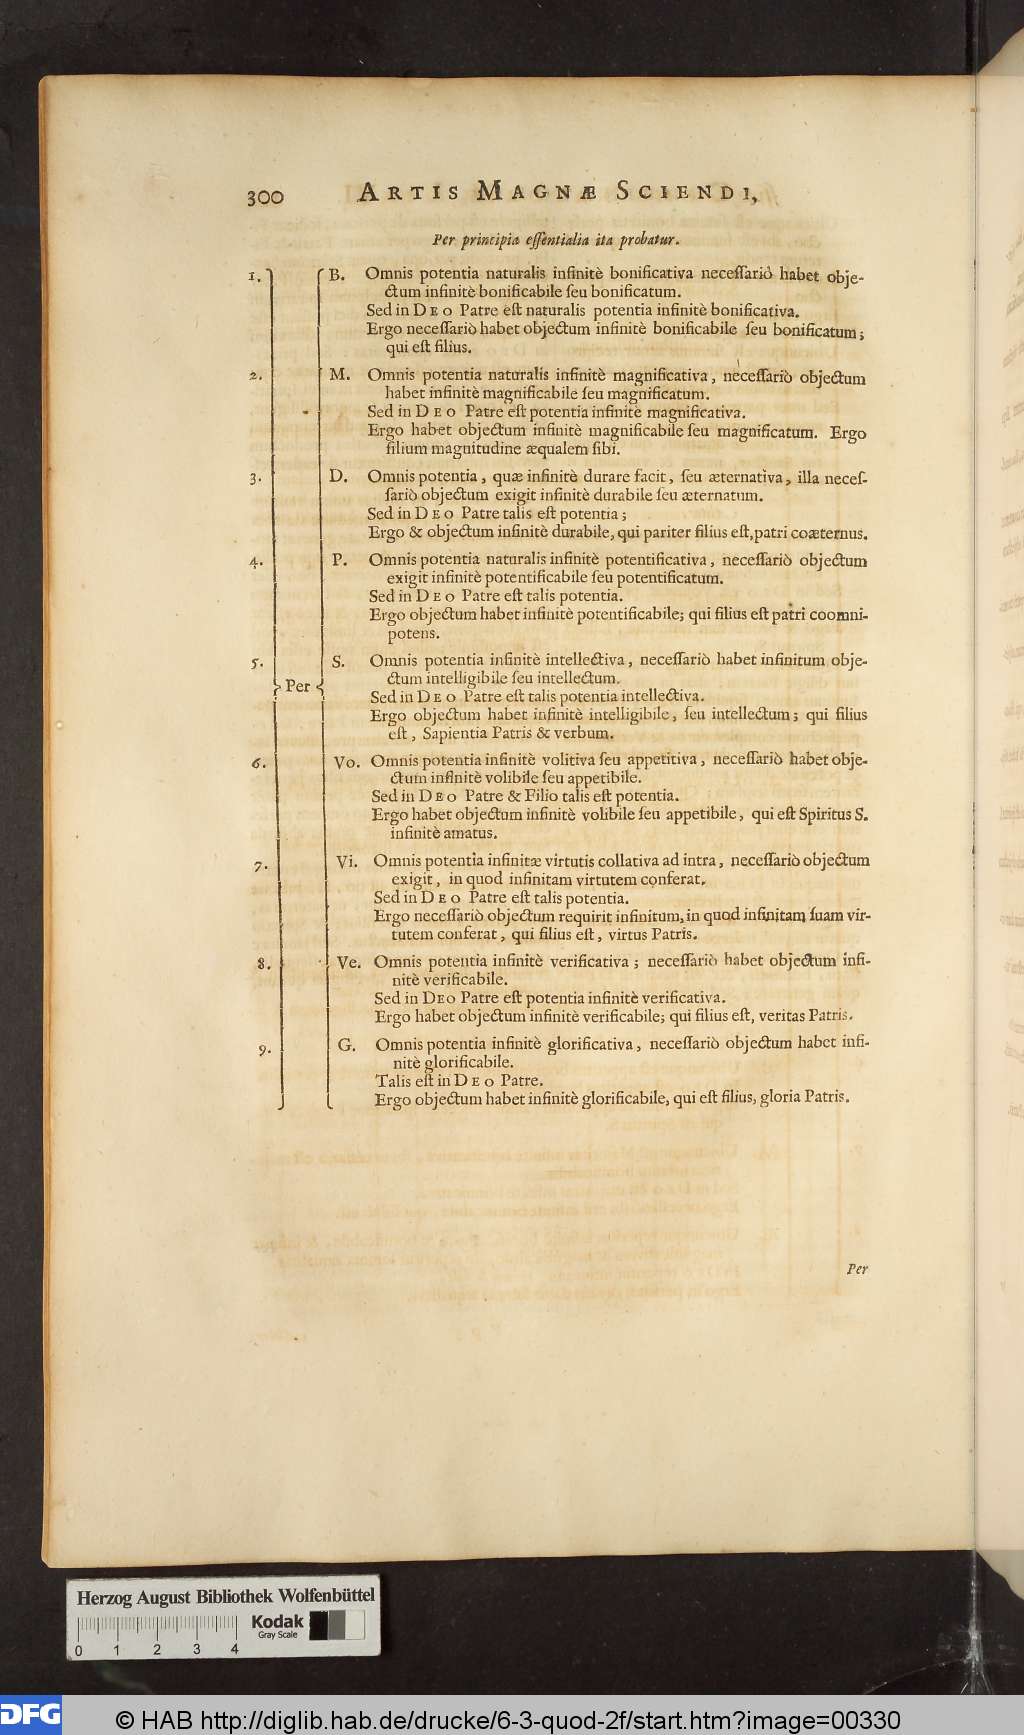 300 ARTIS MAGNÆ SCIENDI,
Per principia eſſentialia ita probatur.
1. B. Omnis potentia naturalis infinitè bonificativa neceſſariò habet obje-
ctum infinitè bonificabile ſeu bonificatum.
Sed in DEO Patre eſt naturalis potentia infinitè bonificativa.
Ergo neceſſariò habet objectum infinitè bonificabile ſeu bonificatum;
qui eſt filius.
2. M. Omnis potentia naturalis infinitè magnificativa, neceſſariò objectum
habet infinitè magnificabile ſeu magnificatum.
Sed in DEO Patre eſt potentia infinitè magnificativa.
Ergo habet objectum infinitè magnificabile ſeu magnificatum. Ergo
filium magnitudine æqualem ſibi.
3. D. Omnis potentia, quæ infinitè durare facit, ſeu æternativa, illa neceſ-
ſariò objectum exigit infinitè durabile ſeu æternatum.
Sed in DEO Patre talis eſt potentia;
Ergo & objectum infinitè durabile, qui pariter filius eſt, patri coæternus.
4. P. Omnis potentia naturalis infinitè potentificativa, neceſſariò objectum
exigit infinitè potentificabile ſeu potentificatum.
Sed in DEO Patre eſt talis potentia.
Ergo objectum habet infinitè potentificabile; qui filius eſt patri coomni-
potens.
5. S. Omnis potentia infinitè intellectiva, neceſſariò habet infinitum obje-
ctum intelligibile ſeu intellectum.
Per
Sed in DEO Patre eſt talis potentia intellectiva.
Ergo objectum habet infinitè intelligibile, ſeu intellectum; qui filius
eſt, Sapientia Patris & verbum.
6. Vo. Omnis potentia infinitè volitiva ſeu appetitiva, neceſſariò habet obje-
ctum infinitè volibile ſeu appetibile.
Sed in DEO Patre & Filio talis eſt potentia.
Ergo habet objectum infinitè volibile ſeu appetibile, qui eſt Spiritus S.
infinitè amatus.
7. Vi. Omnis potentia infinitæ virtutis collativa ad intra, neceſſariò objectum
exigit, in quod infinitam virtutem conferat.
Sed in DEO Patre eſt talis potentia.
Ergo neceſſariò objectum requirit infinitum, in quod infinitam ſuam vir-
tutem conferat, qui filius eſt, virtus Patris.
8. Ve. Omnis potentia infinitè verificativa; neceſſariò habet objectum infi-
nitè verificabile.
Sed in DEO Patre eſt potentia infinitè verificativa.
Ergo habet objectum infinitè verificabile; qui filius eſt, veritas Patris.
9. G. Omnis potentia infinitè glorificativa, neceſſariò objectum habet infi-
nitè glorificabile.
Talis eſt in DEO Patre.
Ergo objectum habet infinitè glorificabile, qui eſt filius, gloria Patris.
Per
Herzog August Bibliothek Wolfenbüttel
Kodak
Gray Scale
0 1 2 3 4
DFG
© HAB http://diglib.hab.de/drucke/6-3-quod-2f/start.htm?image=00330